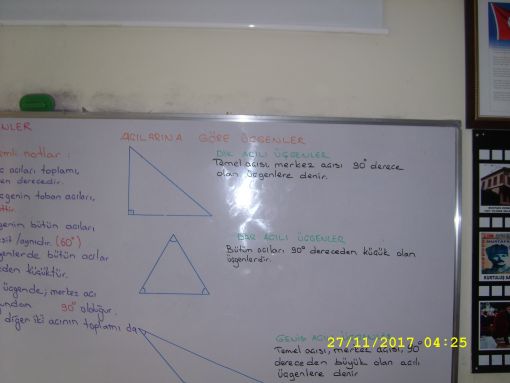 AÇILARINA GÖRE ÜÇGENLER
DİK AÇILI ÜÇGENLER
Temel açısı, merkez açısı 90° derece
olan üçgenlere denir.
DAR AÇILI ÜÇGENLER
Bütün açıları 90° dereceden küçük olan
üçgenlerdir.
GENİŞ AÇILI ÜÇGENLER
Temel açısı, merkez açısı, 90°
dereceden büyük olan açılı
üçgenlere denir
NLER
emli notlar :
ç açıları toplamı,
derecedir.
çgenin taban açıları,
ttir.
genin bütün açıları
şit /aynıdır. (60°)
genlerde bütün açılar
den küçüktür.
üçgende; merkez açı
undan 90° olduğu
diğer iki açının toplamı da
27/11/2017 04:25
KURTULUŞ